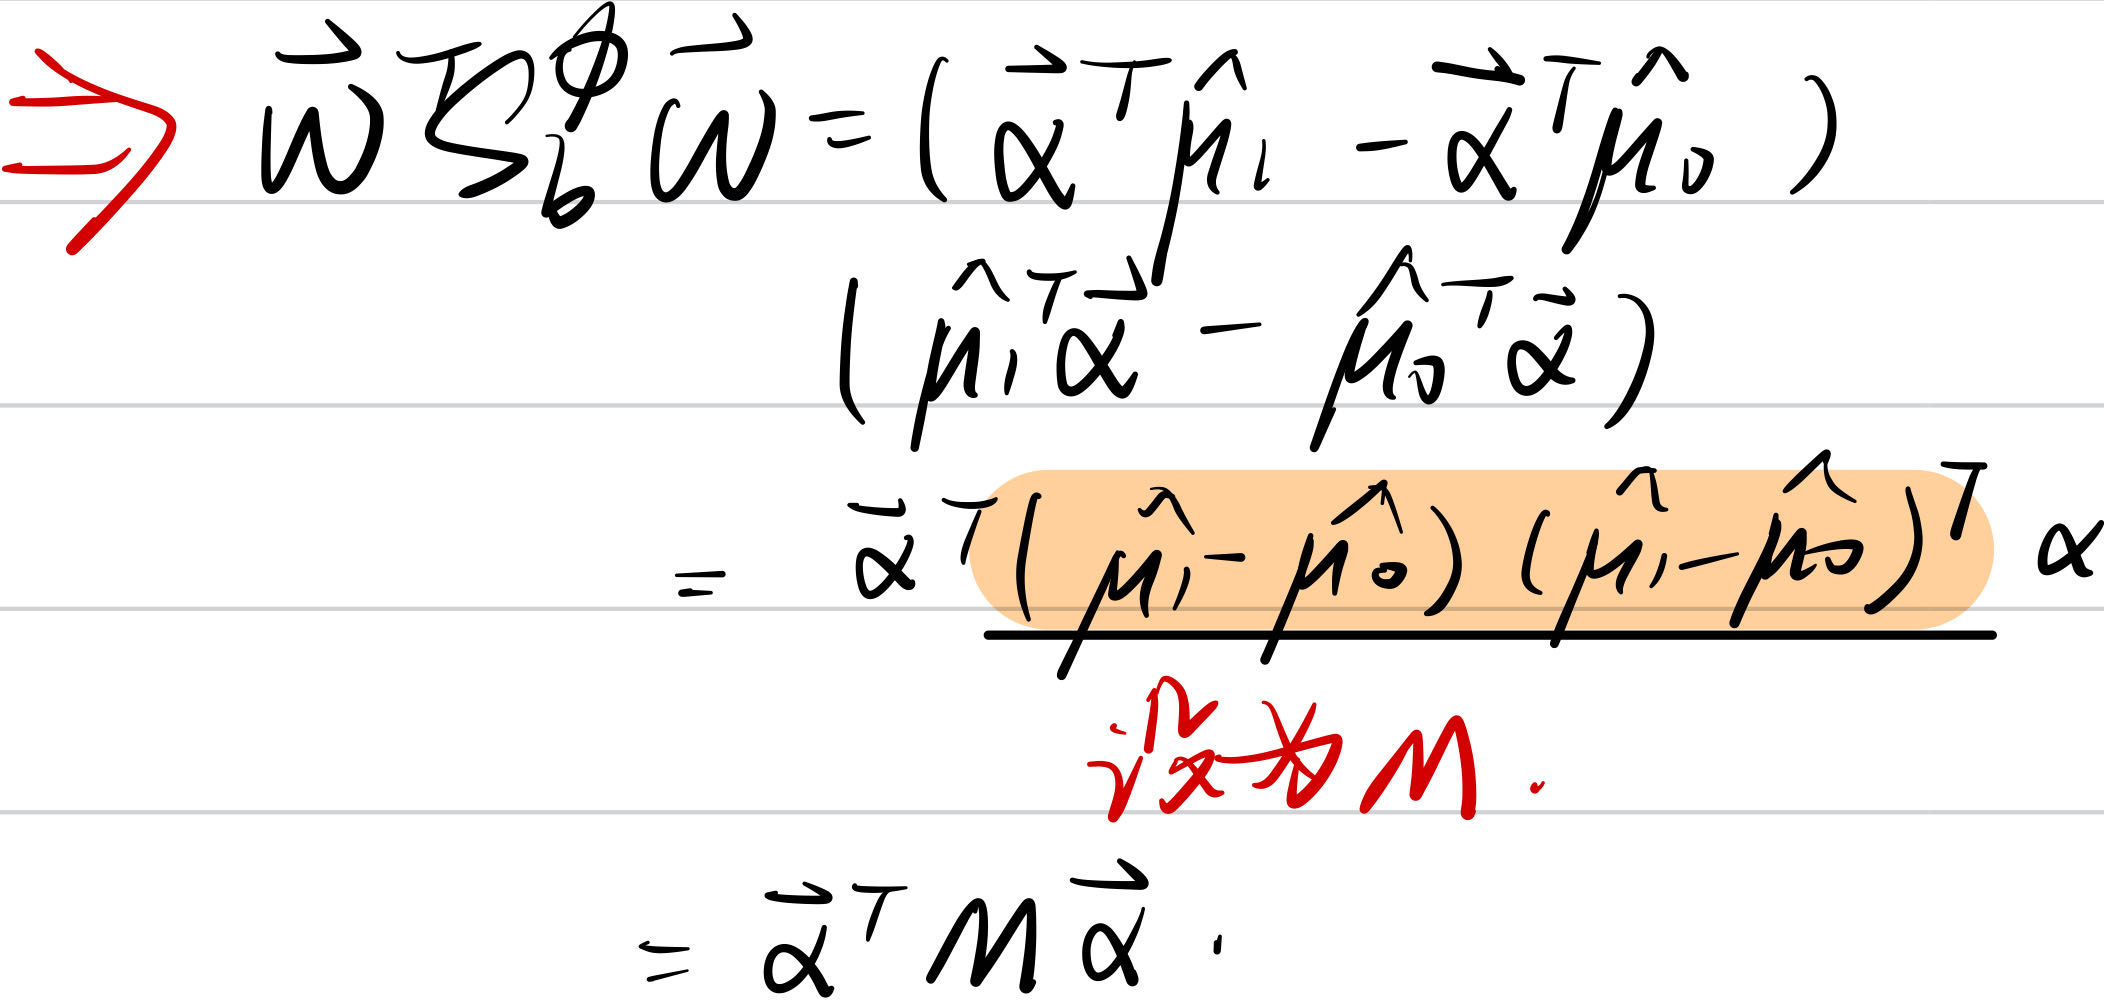 ⇒ $\vec{w}^T S_b^\phi \vec{w} = (\vec{\alpha}^T \hat{\mu}_1 - \vec{\alpha}^T \hat{\mu}_0)$
$(\hat{\mu}_1^T \vec{\alpha} - \hat{\mu}_0^T \vec{\alpha})$
$= \vec{\alpha}^T (\hat{\mu}_1 - \hat{\mu}_0)(\hat{\mu}_1 - \hat{\mu}_0)^T \alpha$
记为 M.
$= \vec{\alpha}^T M \vec{\alpha}.$